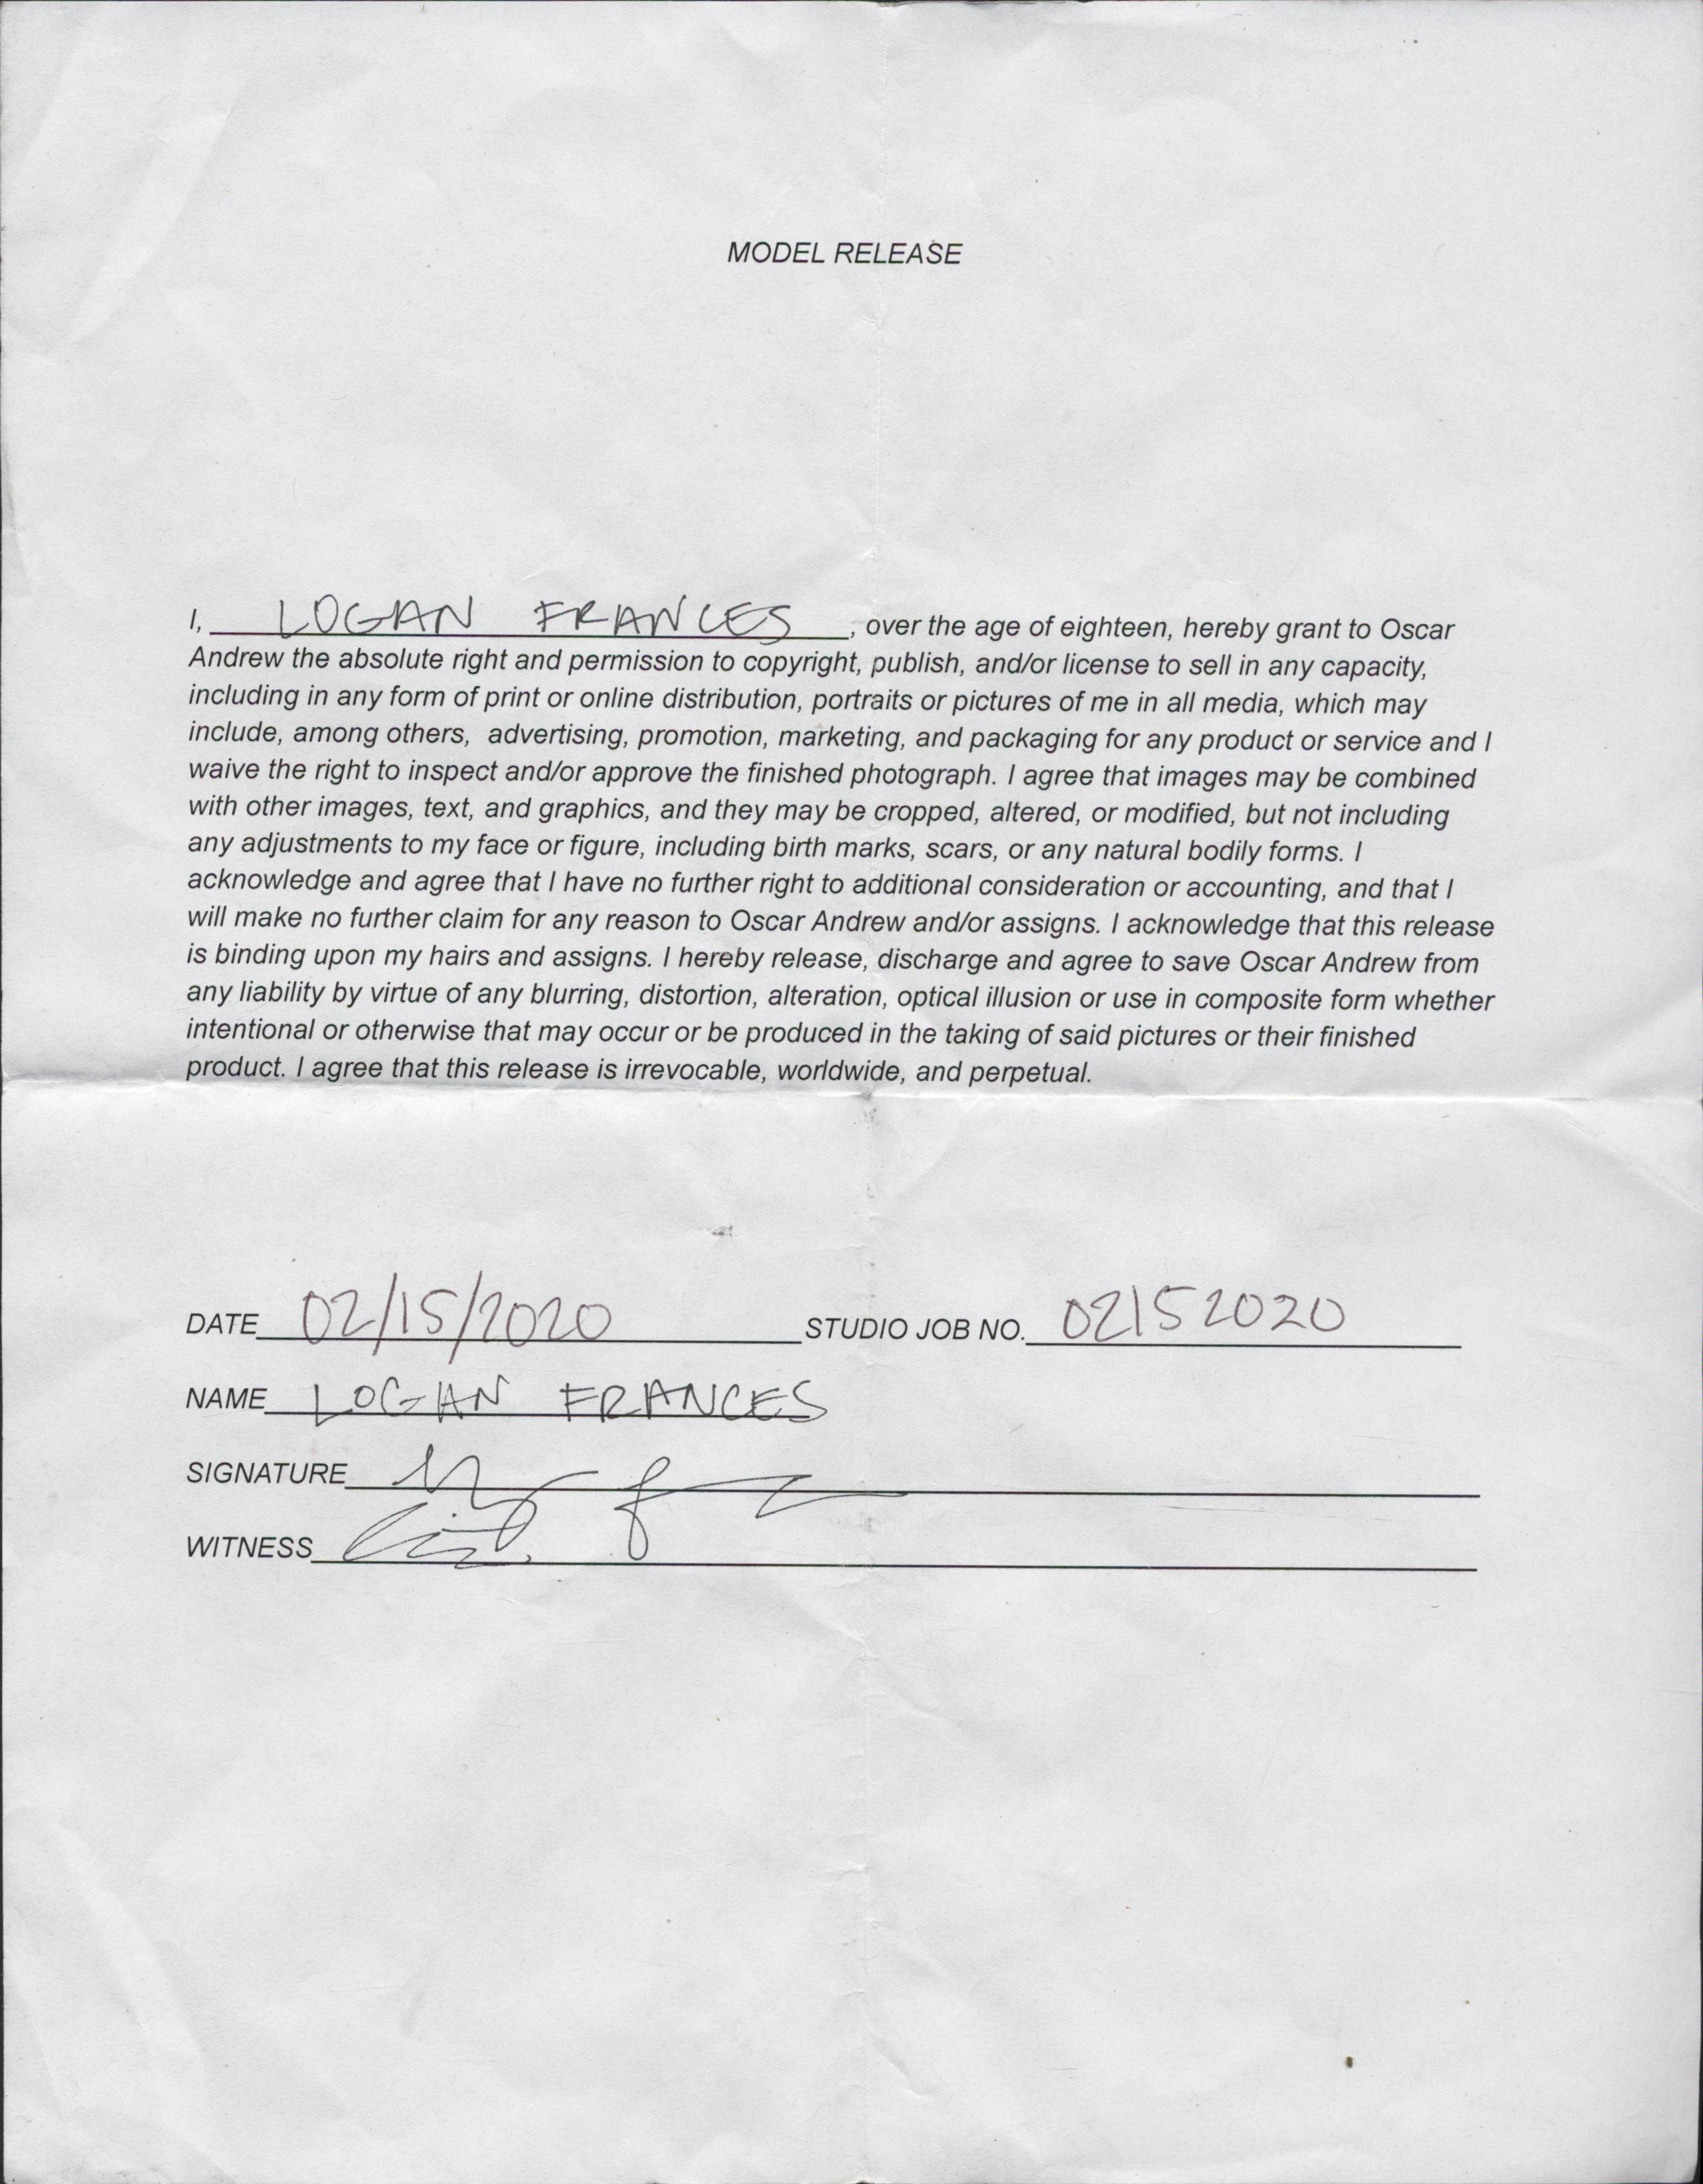 MODEL RELEASE
I, LOGAN FRANCES, over the age of eighteen, hereby grant to Oscar
Andrew the absolute right and permission to copyright, publish, and/or license to sell in any capacity,
including in any form of print or online distribution, portraits or pictures of me in all media, which may
include, among others, advertising, promotion, marketing, and packaging for any product or service and I
waive the right to inspect and/or approve the finished photograph. I agree that images may be combined
with other images, text, and graphics, and they may be cropped, altered, or modified, but not including
any adjustments to my face or figure, including birth marks, scars, or any natural bodily forms. I
acknowledge and agree that I have no further right to additional consideration or accounting, and that I
will make no further claim for any reason to Oscar Andrew and/or assigns. I acknowledge that this release
is binding upon my hairs and assigns. I hereby release, discharge and agree to save Oscar Andrew from
any liability by virtue of any blurring, distortion, alteration, optical illusion or use in composite form whether
intentional or otherwise that may occur or be produced in the taking of said pictures or their finished
product. I agree that this release is irrevocable, worldwide, and perpetual.
DATE 02/15/2020 STUDIO JOB NO. 02152020
NAME LOGAN FRANCES
SIGNATURE
WITNESS